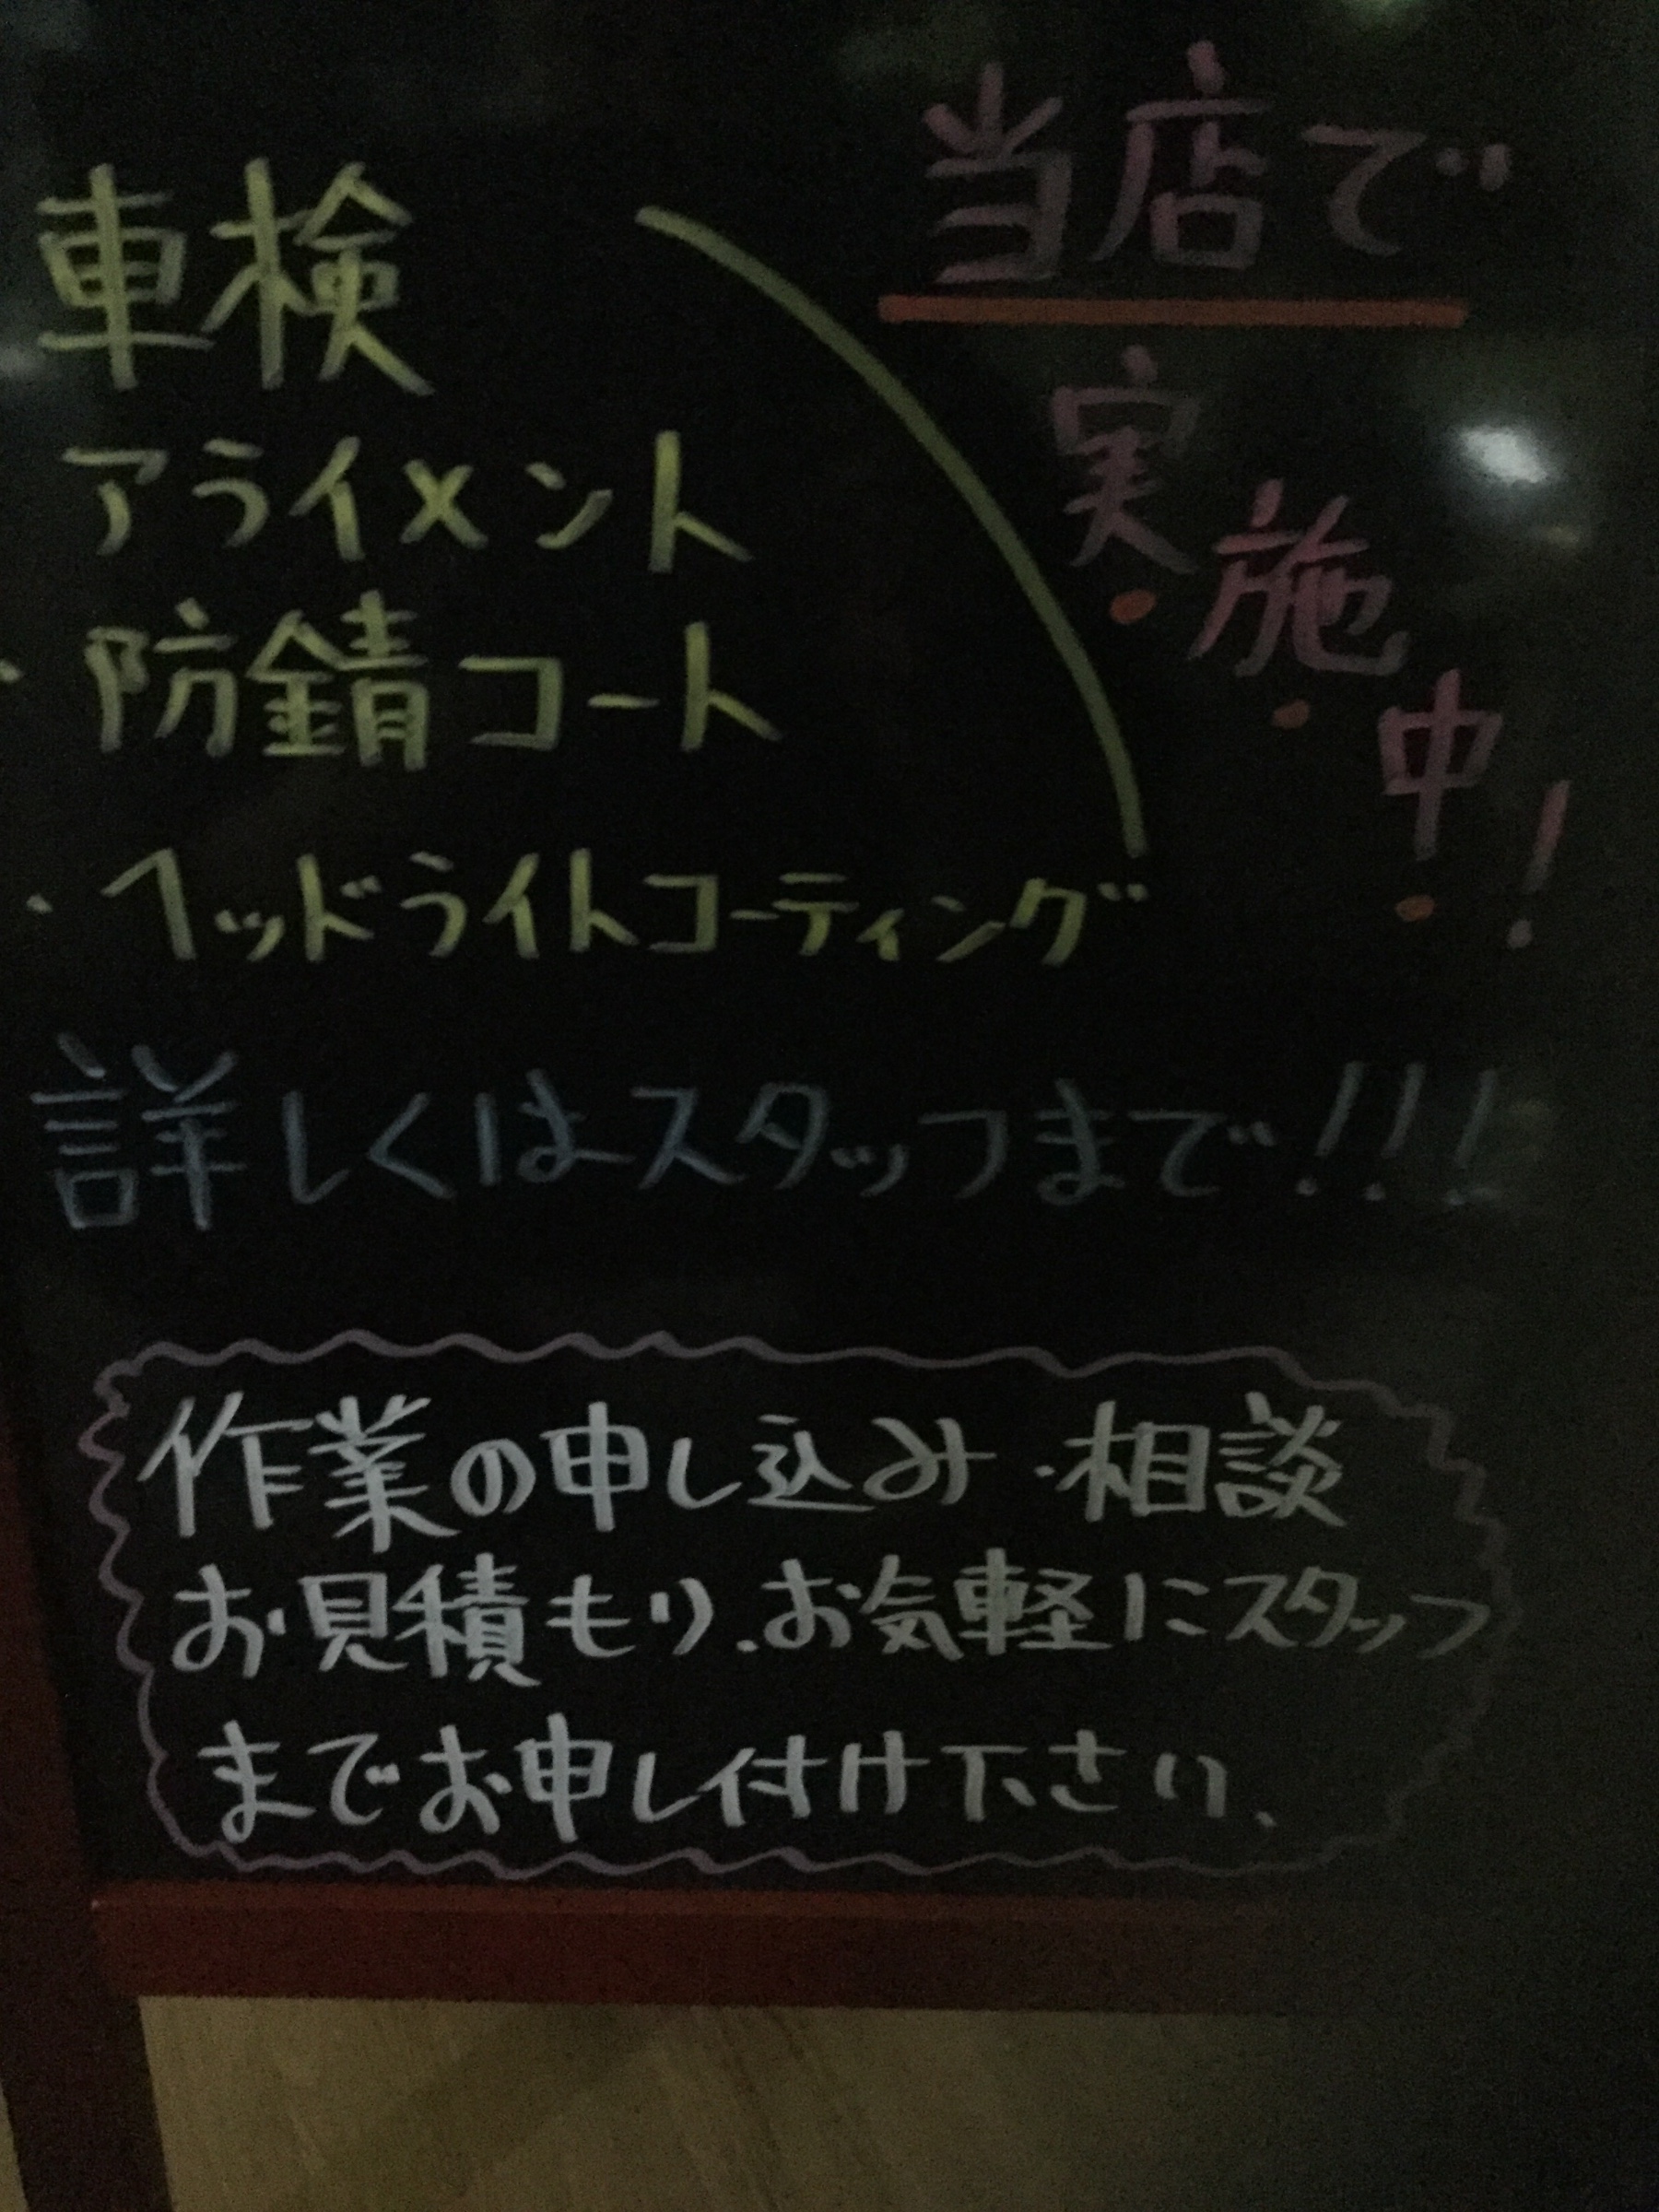 当店で
実施中!
車検
アライメント
・防錆コート
・ヘッドライトコーティング
詳しくはスタッフまで!!!
作業の申し込み・相談
お見積もり、お気軽にスタッフ
までお申し付け下さい、